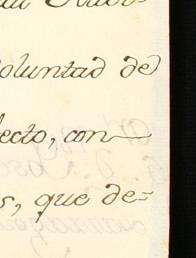 oluntad de
ecto, con
s, que de-